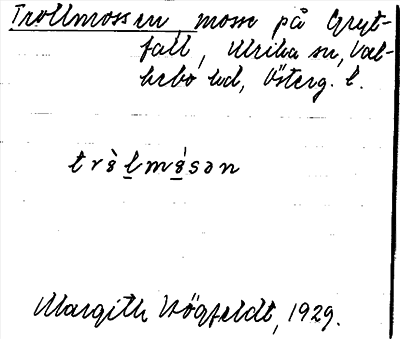 Trollmossen, mosse på Gryt-
fall, Ulrika sn, Val-
kebo hd, Österg. l.
trɵ̀lmɵ́sən
Margith Högfeldt, 1929.